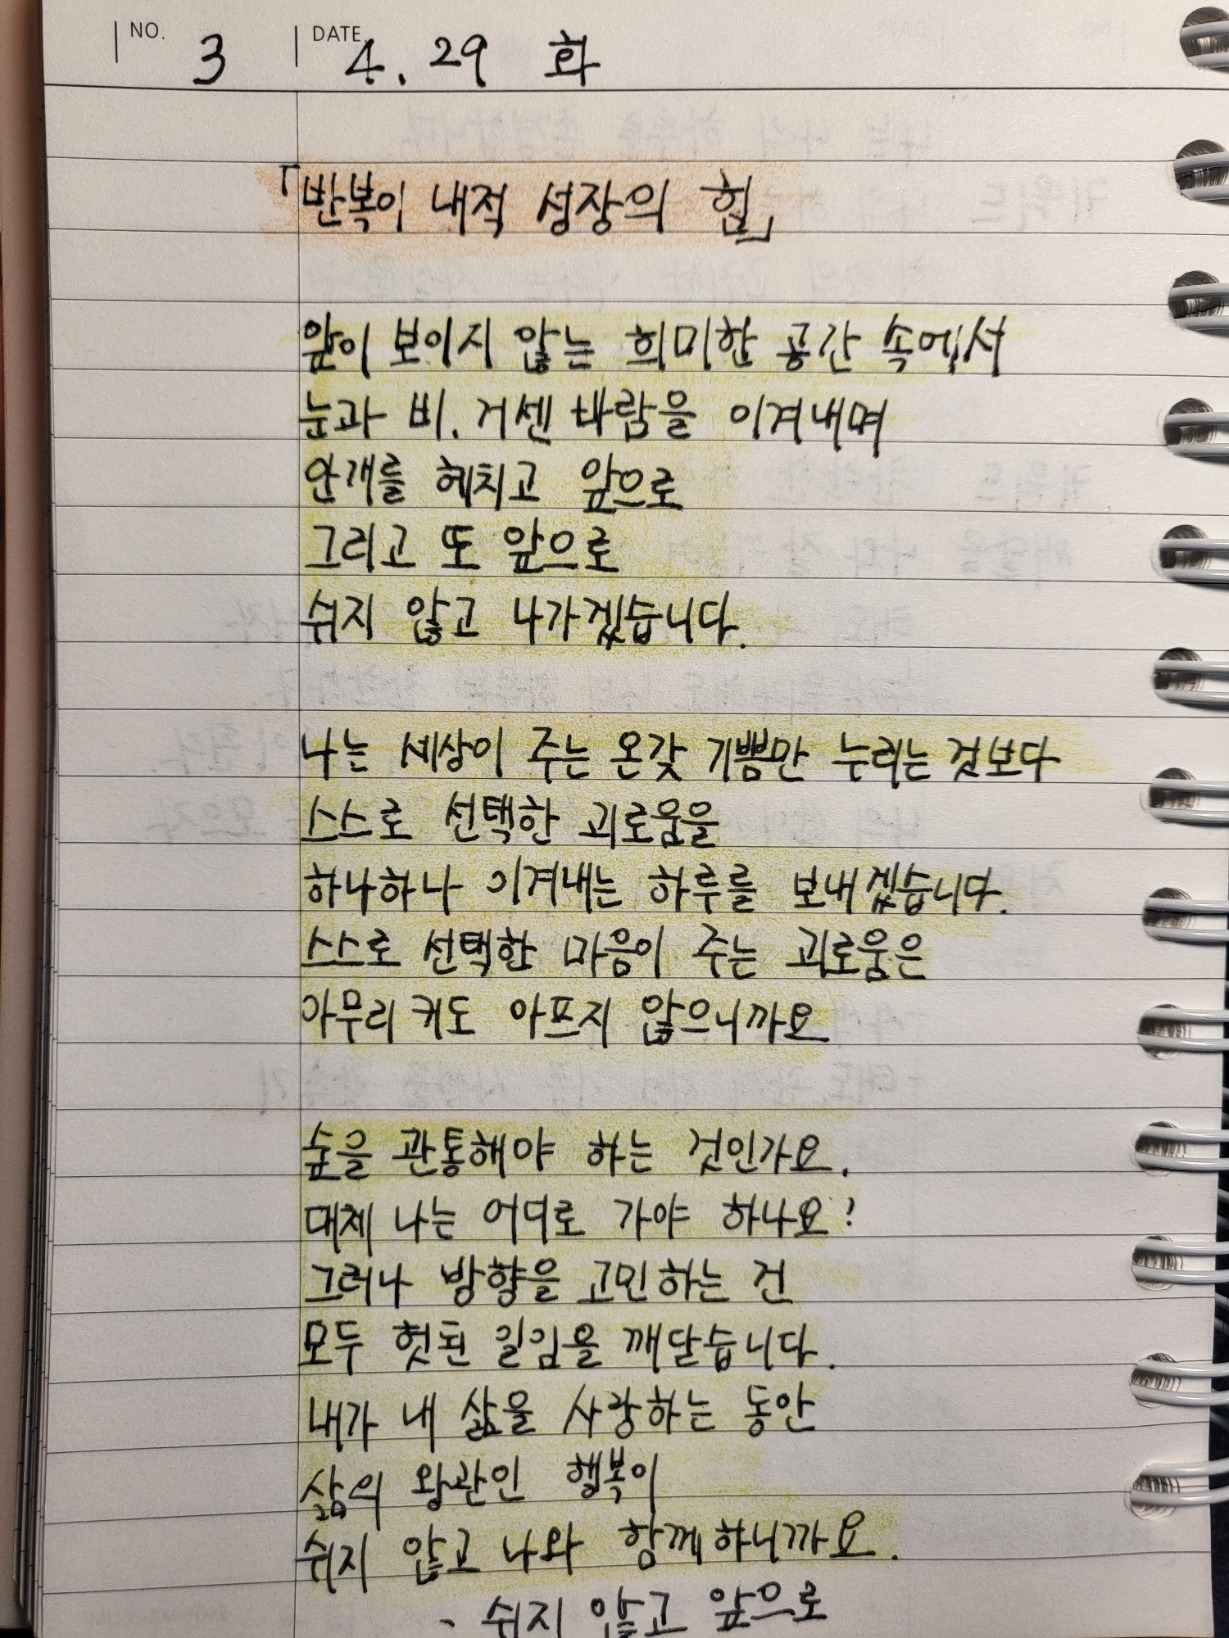 NO. 3 DATE 4. 29 화
「반복이 내적 성장의 힘」
앞이 보이지 않는 희미한 공간 속에서
눈과 비, 거센 바람을 이겨내며
안개를 헤치고 앞으로
그리고 또 앞으로
쉬지 않고 나가겠습니다.
나는 세상이 주는 온갖 기쁨만 누리는 것보다
스스로 선택한 괴로움을
하나하나 이겨내는 하루를 보내겠습니다.
스스로 선택한 마음이 주는 괴로움은
아무리 커도 아프지 않으니까요
숲을 관통해야 하는 것인가요.
대체 나는 어디로 가야 하나요?
그러나 방향을 고민하는 건
모두 헛된 일임을 깨닫습니다.
내가 내 삶을 사랑하는 동안
삶의 왕관인 행복이
쉬지 않고 나와 함께하니까요.
- 쉬지 않고 앞으로